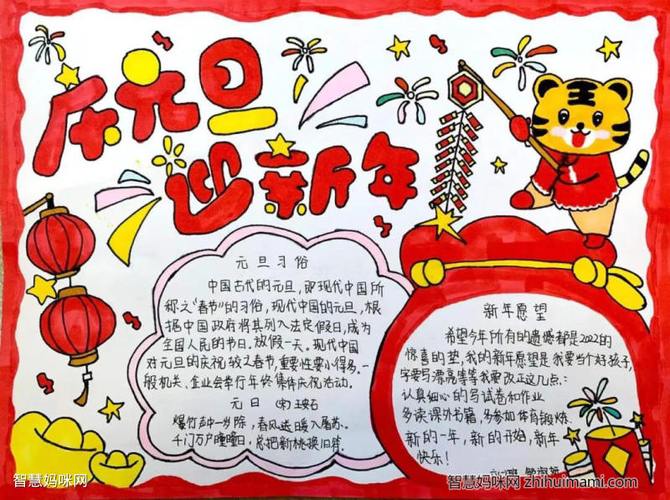 庆元旦
迎新年
元旦习俗
中国古代的元旦，即现代中国所
称之"春节"的习俗，现代中国的元旦，根
据中国政府将其列入法定假日，成为
全国人民的节日。放假一天。现代中国
对元旦的庆祝较之春节，重要性要小得多。一
般机关、企业会举行年终集体庆祝活动。
元日 (宋)王安石
爆竹声中一岁除，春风送暖入屠苏。
千门万户曈曈日，总把新桃换旧符。
新年愿望
希望今年所有的遗憾都是2022的
惊喜的垫，我的新年愿望是我要当个好孩子，
字要写漂亮等等我要改正这几点：
认真细心的写试卷和作业
多读课外书籍，多参加体育锻炼。
新的一年，新的开始，新年
快乐！
智慧妈咪网
智慧妈咪网 zhihuimami.com